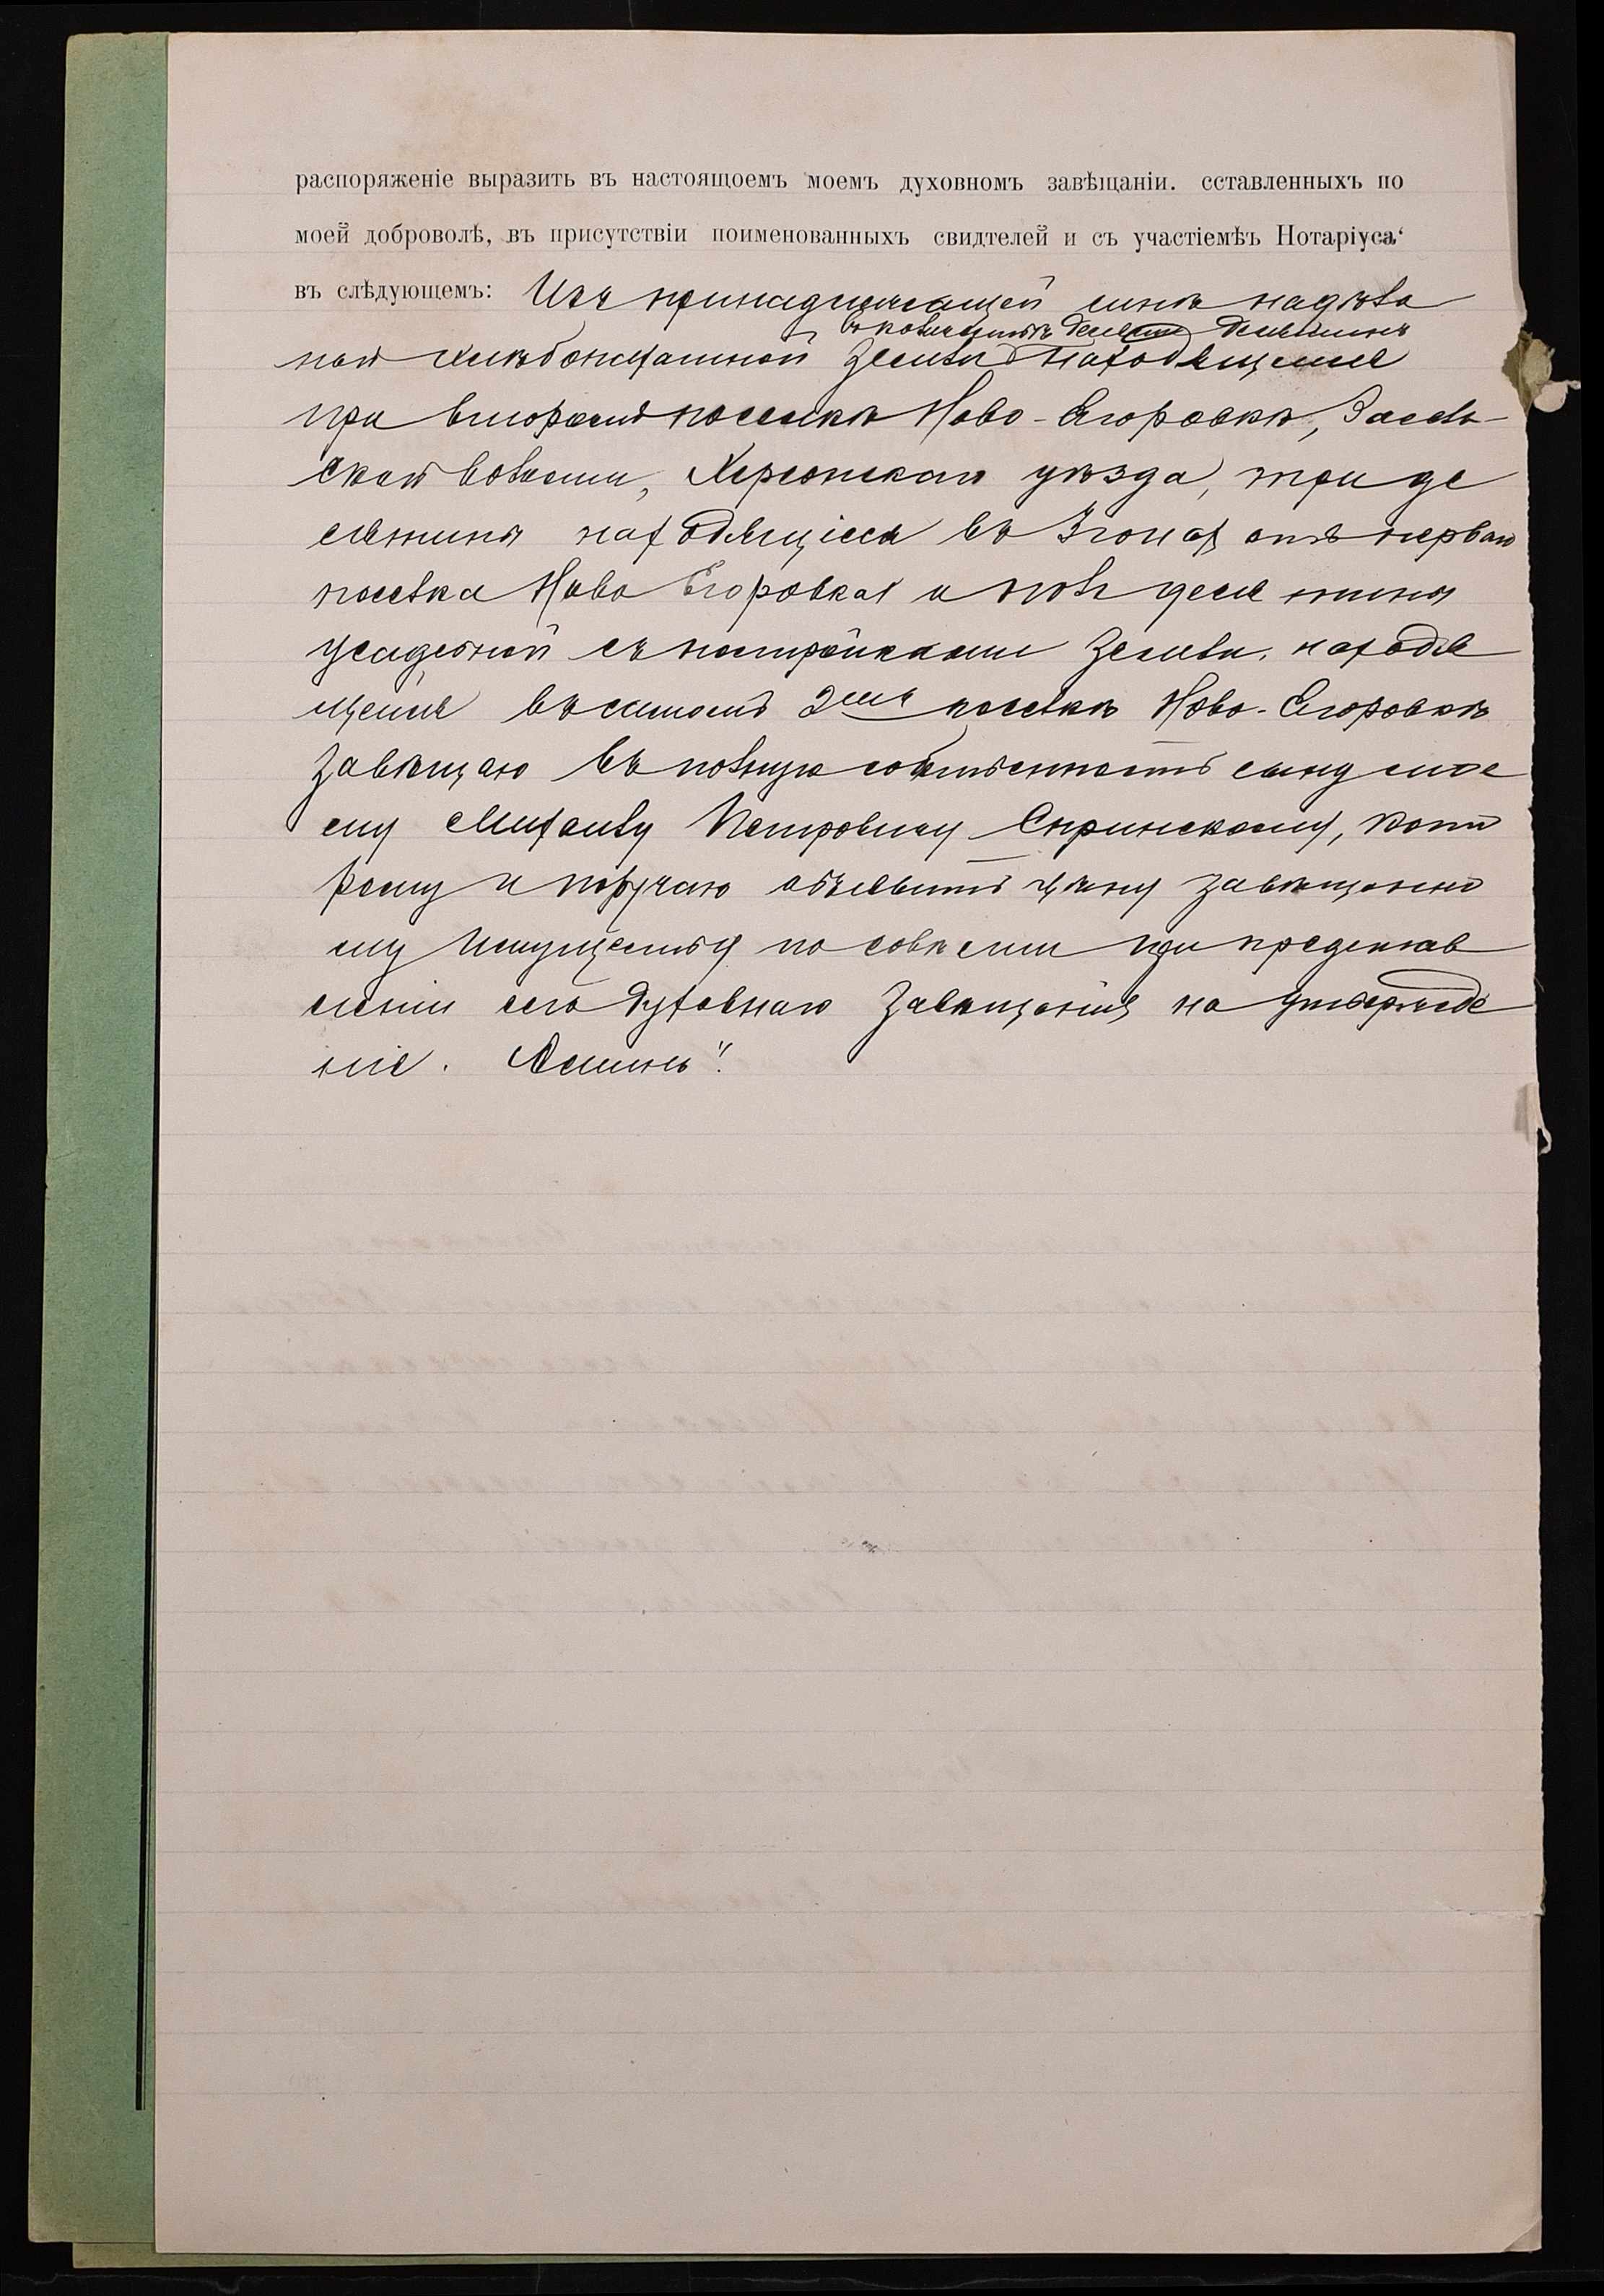 распоряженіе выразить въ настоящоемъ моемъ духовномъ завѣщаніи. сставленныхъ по
моей доброволѣ, въ присутствіи поименованныхъ свидтелей и съ участіемѣъ Нотаріуса‘
въ слѣдующемъ: Изъ принадлежащей мнѣ надѣль
въ количествѣ десятинъ
ной хлѣбопахатной земли находящемся
при второмъ поселкѣ Ново-Егоровкѣ, Засель-
ской волости, Херсонскаго уѣзда, три де
сятины находящіеся въ Згонах отъ перваго
поселка Ново Егоровкая и полъ деся тины
усадебной съ постройками земли, находя
щейся въ самомъ 2мъ поселкѣ Ново-Егоровкѣ
завѣщаю въ полную собственность сыну мое
му Михаилу Петровичу Скринскому, кото
рому и поручаю объявить цѣну завѣщанно
му имуществу по совѣсти при представ
леніи сего духовнаго завѣщанія на утвержде
ніе. Аминь".